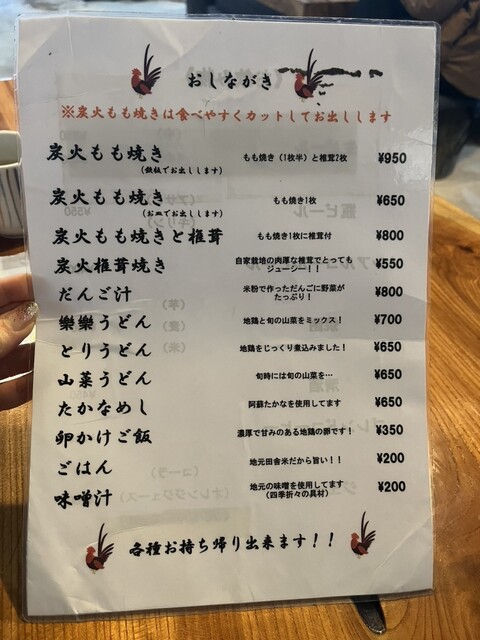 おしながき
※炭火もも焼きは食べやすくカットしてお出しします
炭火もも焼き もも焼き（1枚半）と椎茸2枚 ¥950
（鉄板でお出しします）
炭火もも焼き もも焼き1枚 ¥650
（お皿でお出しします）
炭火もも焼きと椎茸 もも焼き1枚に椎茸付 ¥800
炭火椎茸焼き 自家栽培の肉厚な椎茸でとっても ¥550
ジューシー！！
だんご汁 米粉で作っただんごに野菜が ¥800
たっぷり！
樂樂うどん 地鶏と旬の山菜をミックス！ ¥700
とりうどん 地鶏をじっくり煮込みました！ ¥650
山菜うどん 旬時には旬の山菜を… ¥650
たかなめし 阿蘇たかなを使用してます ¥650
卵かけご飯 濃厚で甘みのある地鶏の卵です！ ¥350
ごはん 地元田舎米だから旨い！！ ¥200
味噌汁 地元の味噌を使用してます ¥200
（四季折々の具材）
各種お持ち帰り出来ます！！